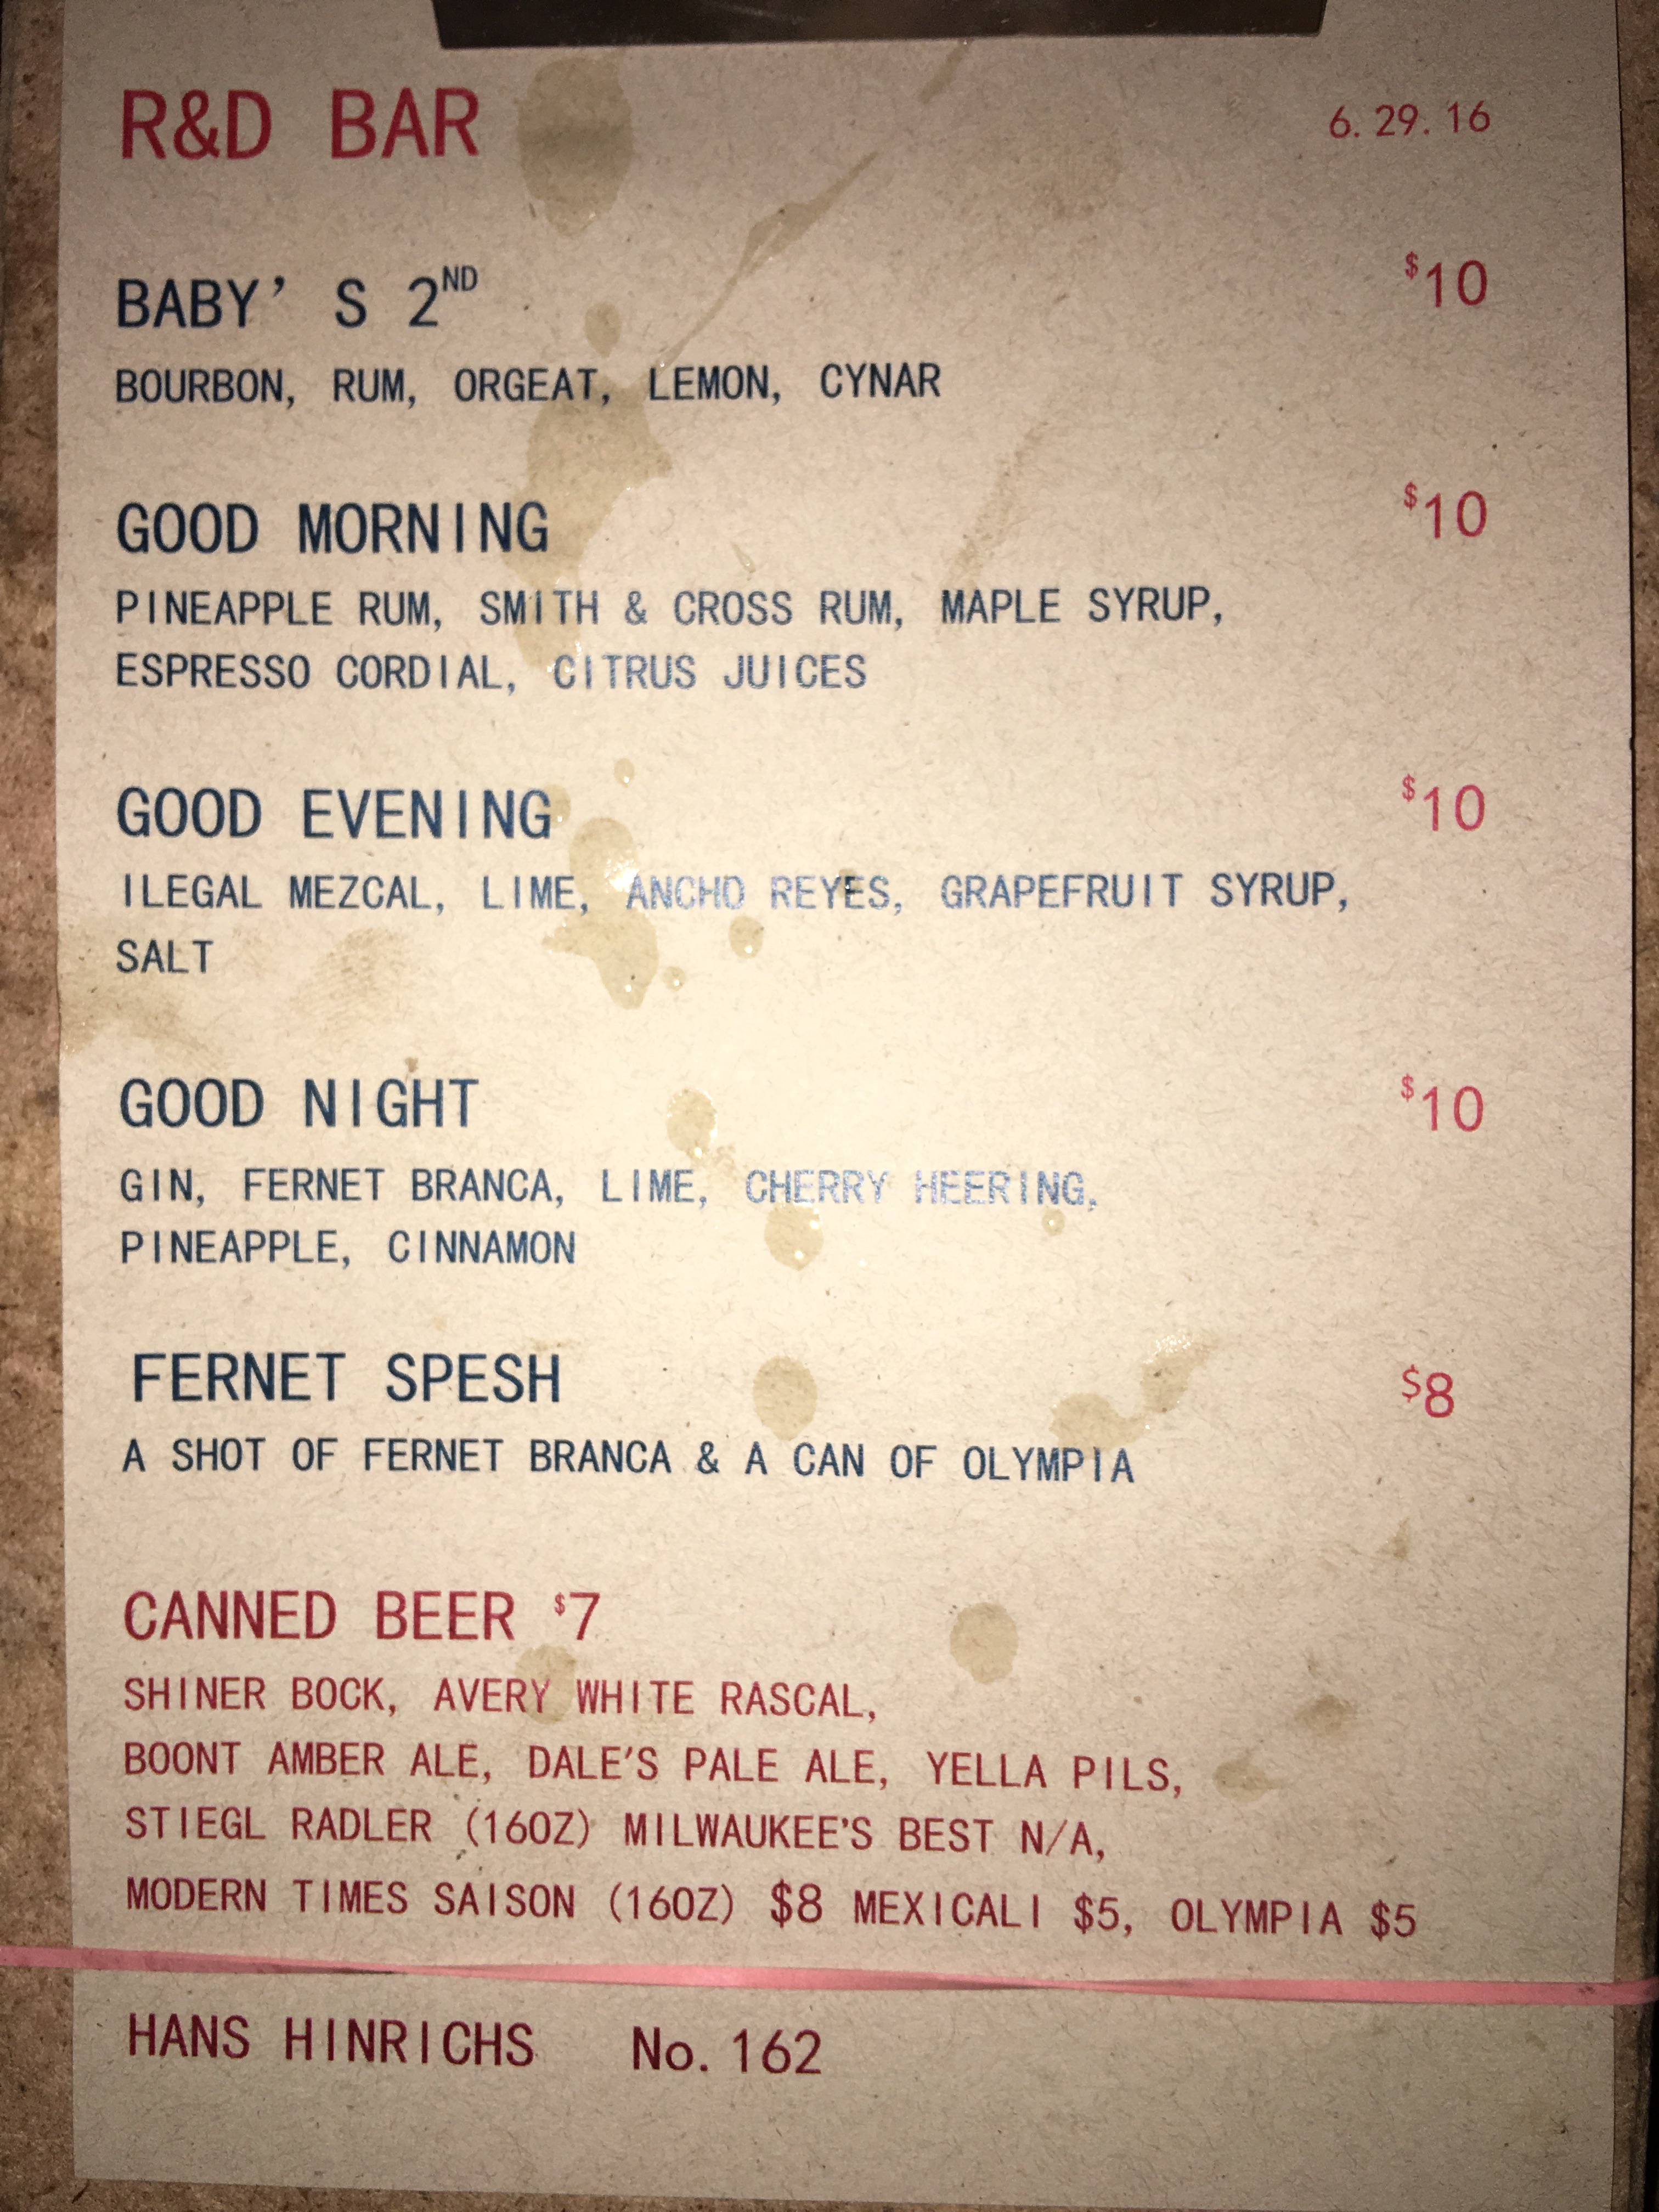 R&D BAR 6.29.16
BABY'S 2ND $10
BOURBON, RUM, ORGEAT, LEMON, CYNAR
GOOD MORNING $10
PINEAPPLE RUM, SMITH & CROSS RUM, MAPLE SYRUP,
ESPRESSO CORDIAL, CITRUS JUICES
GOOD EVENING $10
ILEGAL MEZCAL, LIME, ANCHO REYES, GRAPEFRUIT SYRUP,
SALT
GOOD NIGHT $10
GIN, FERNET BRANCA, LIME, CHERRY HEERING,
PINEAPPLE, CINNAMON
FERNET SPESH $8
A SHOT OF FERNET BRANCA & A CAN OF OLYMPIA
CANNED BEER $7
SHINER BOCK, AVERY WHITE RASCAL,
BOONT AMBER ALE, DALE'S PALE ALE, YELLA PILS,
STIEGL RADLER (16OZ) MILWAUKEE'S BEST N/A,
MODERN TIMES SAISON (16OZ) $8 MEXICALI $5, OLYMPIA $5
HANS HINRICHS No. 162